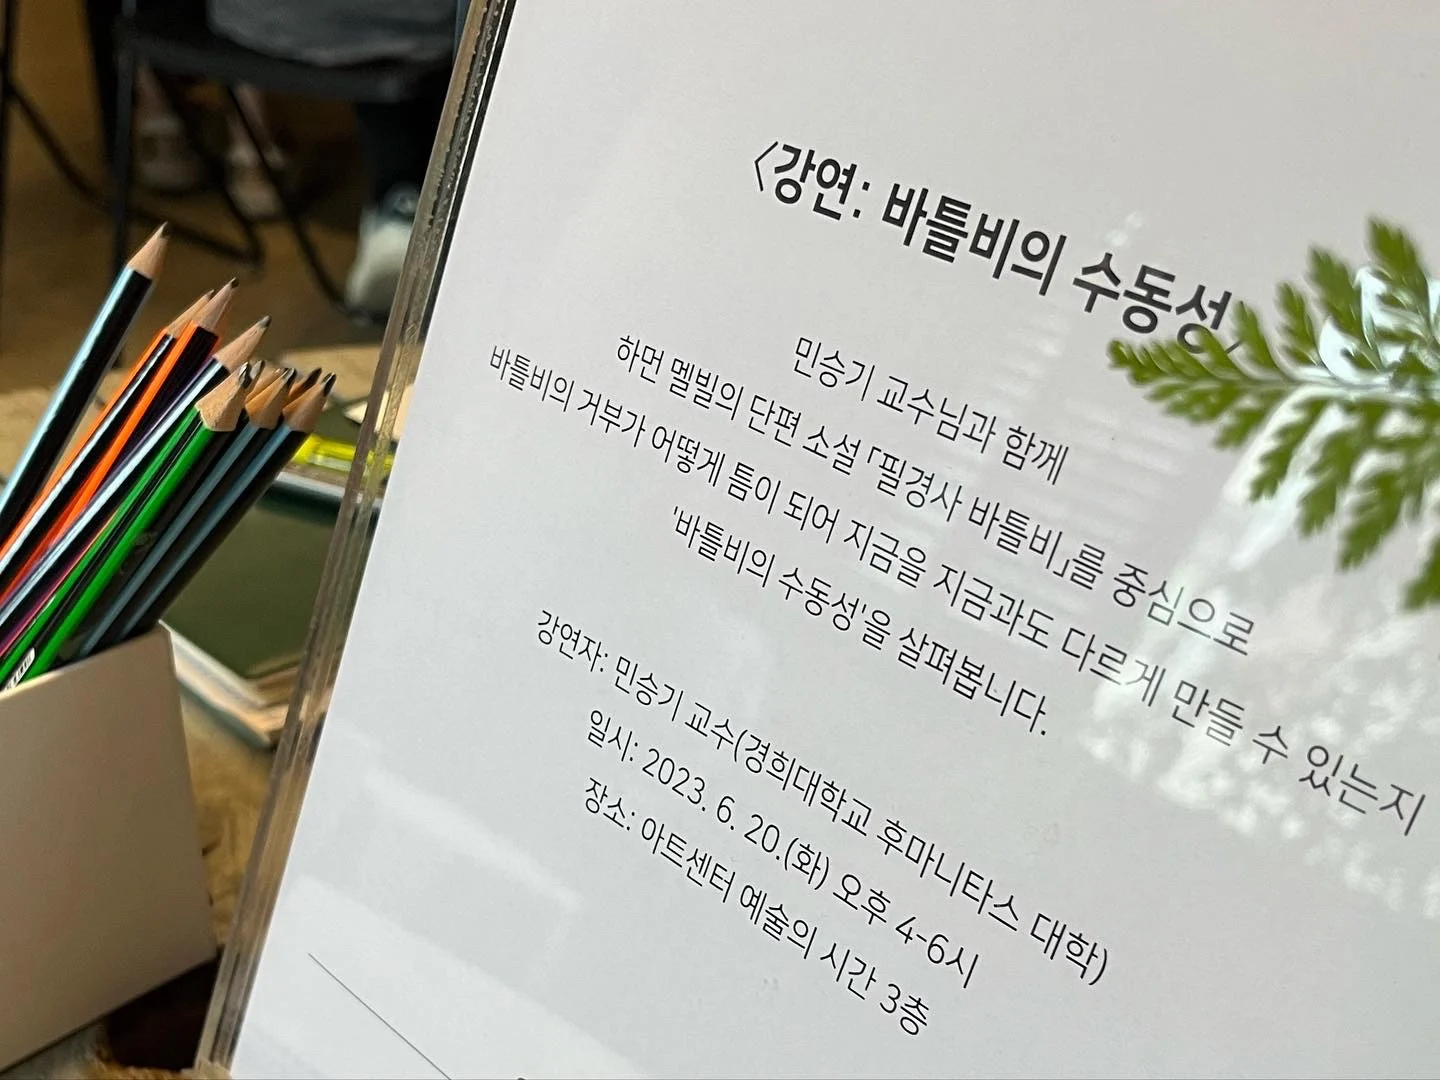 <강연: 바틀비의 수동성>
민승기 교수님과 함께
하먼 멜빌의 단편 소설 「필경사 바틀비」를 중심으로
바틀비의 거부가 어떻게 틈이 되어 지금을 지금과도 다르게 만들 수 있는지
'바틀비의 수동성'을 살펴봅니다.
강연자: 민승기 교수(경희대학교 후마니타스 대학)
일시: 2023. 6. 20.(화) 오후 4-6시
장소: 아트센터 예술의 시간 3층